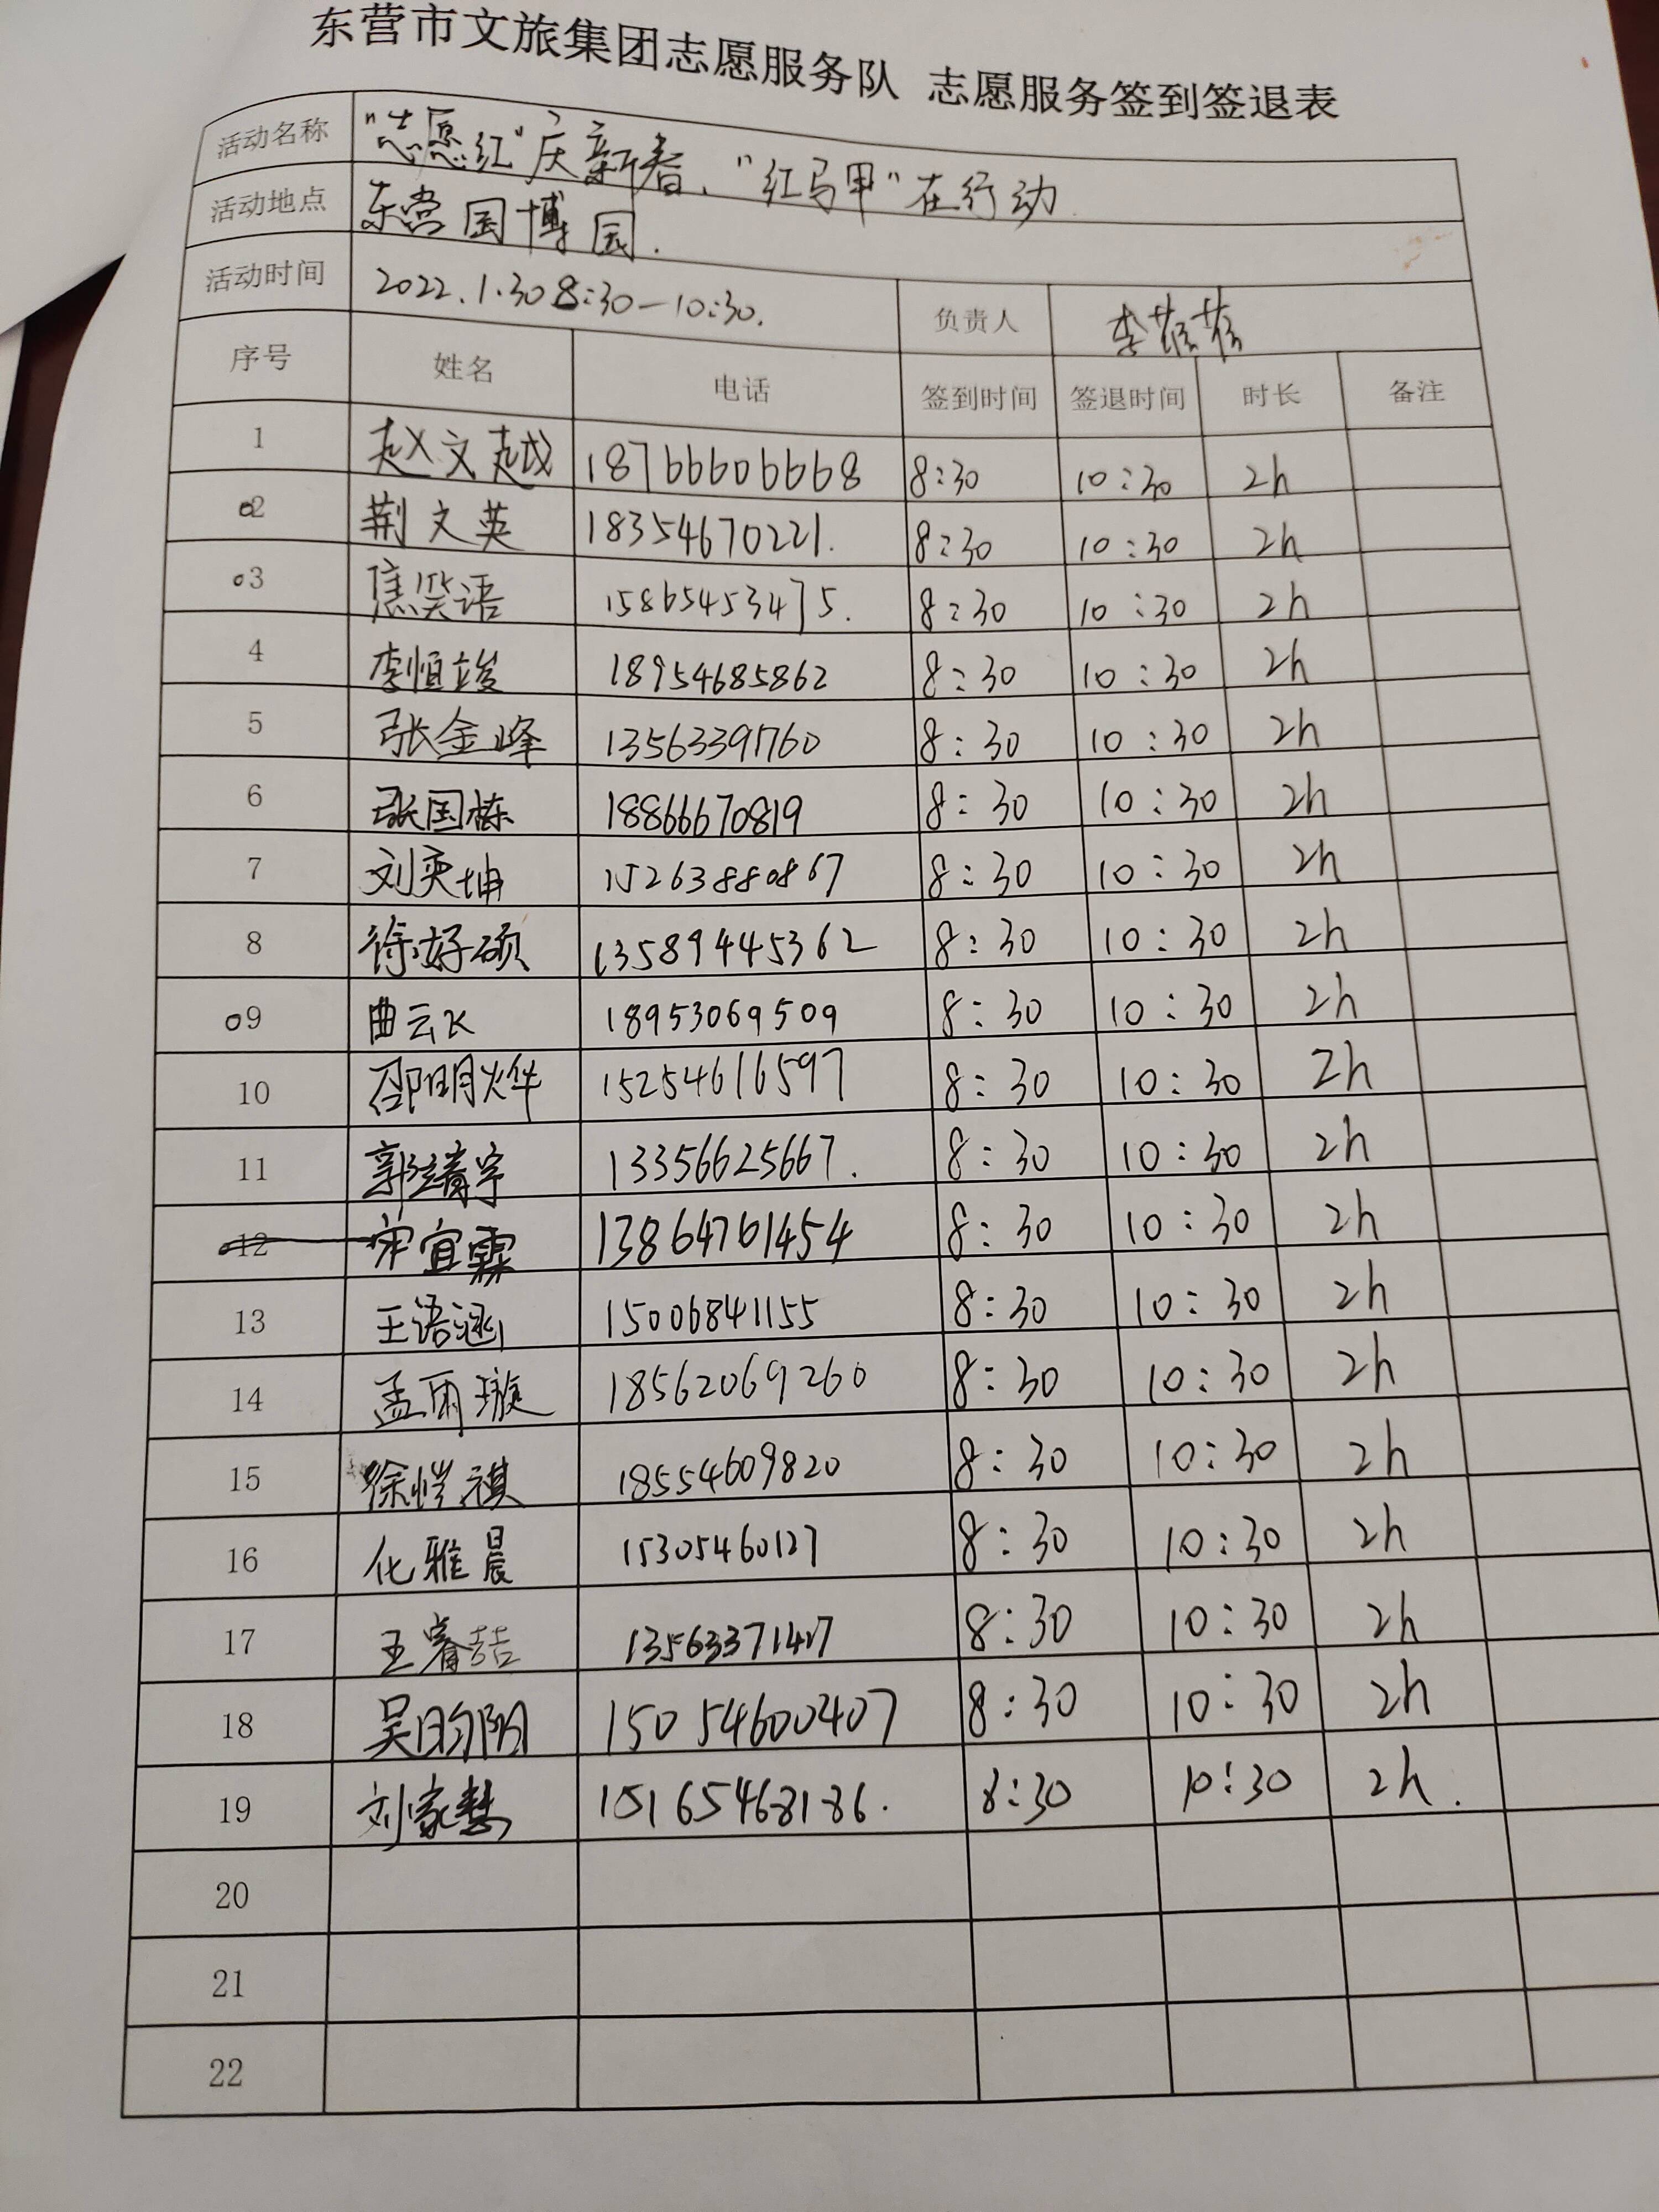 东营市文旅集团志愿服务队 志愿服务签到签退表
活动名称 "志愿红"庆新春、"红马甲"在行动
活动地点 东营园博园.
活动时间 2022.1.30 8:30—10:30. 负责人 李
序号 姓名 电话 签到时间 签退时间 时长 备注
1 赵文越 18766606668 8:30 10:30 2h
02 荆文英 18354670221. 8:30 10:30 2h
03 焦笑语 15865453475. 8:30 10:30 2h
4 李恒竣 18954685862 8:30 10:30 2h
5 张金峰 13563391760 8:30 10:30 2h
6 张国栋 18866670819 8:30 10:30 2h
7 刘奕坤 15263880867 8:30 10:30 2h
8 徐好硕 13589445362 8:30 10:30 2h
09 曲云飞 18953069509 8:30 10:30 2h
10 邵明烨 15254616597 8:30 10:30 2h
11 郭靖宇 13356625667. 8:30 10:30 2h
12 宋宜霖 13864761454 8:30 10:30 2h
13 王语涵 15006841155 8:30 10:30 2h
14 孟雨璇 18562069260 8:30 10:30 2h
15 徐恺祺 18554609820 8:30 10:30 2h
16 化雅晨 15305460127 8:30 10:30 2h
17 王睿喆 13563371417 8:30 10:30 2h
18 吴昀阳 15054600407 8:30 10:30 2h
19 刘家慧 15165468186. 8:30 10:30 2h.
20
21
22